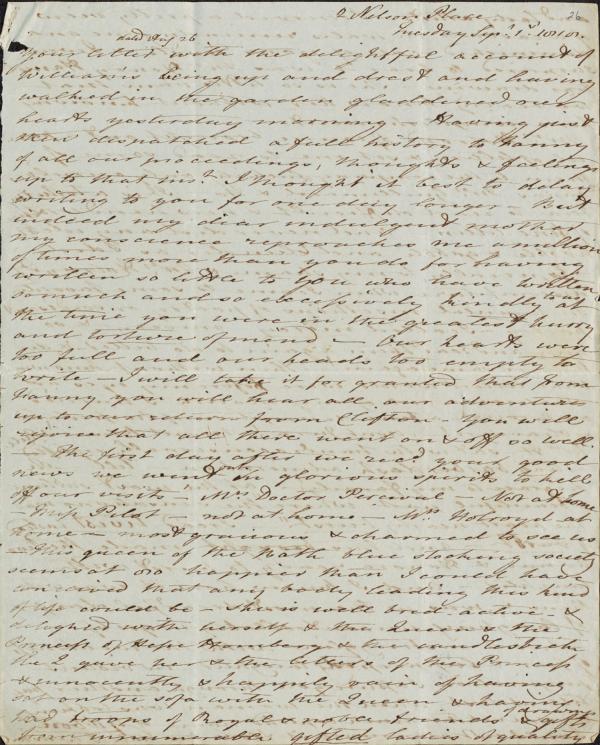 2 Nelson Place 26
Tuesday Sepr. 1st 1818.
recd Aug 26
Your letter with the delightful account of
William's being up and drest and having
walked in the garden gladdened our
hearts yesterday morning — Having just
then dispatched a full history to Fanny
of all our proceedings, thoughts & feelings
up to that inst. I thought it best to delay
writing to you for one day longer but
indeed my dear indulgent mother
my conscience reproaches me a million
of times more than you do for having
written so little to you who have written
to us
so much and so excessively kindly at
the time you were in the greatest hurry
and torture of mind — Our hearts were
too full and our heads too empty to
write — I will take it for granted that from
Fanny you will hear all our adventures
up to our return from Clifton — You will
rejoice that all there went on & off so well
— The first day after we recd your good
news we went in glorious spirits to
off our visits Mrs Doctor Percival — Not at home
— Miss Pilot — not at home — Mrs Holroyd at
home — most gracious & charmed to see us
— This queen of the Bath blue stocking society
seems at 80 happier than I could have
conceived that any body leading this kind
of life could be — She is well bred active &
delighted with herself & the Queen & the
Princess of Hesse Homberg & the
the Q gave her & the letters of the Princess
& innocently & happily vain of having
sat on the sofa with the Queen & having
had troops of Royal & noble friends & gifts
from innumerable gifted ladies of quality